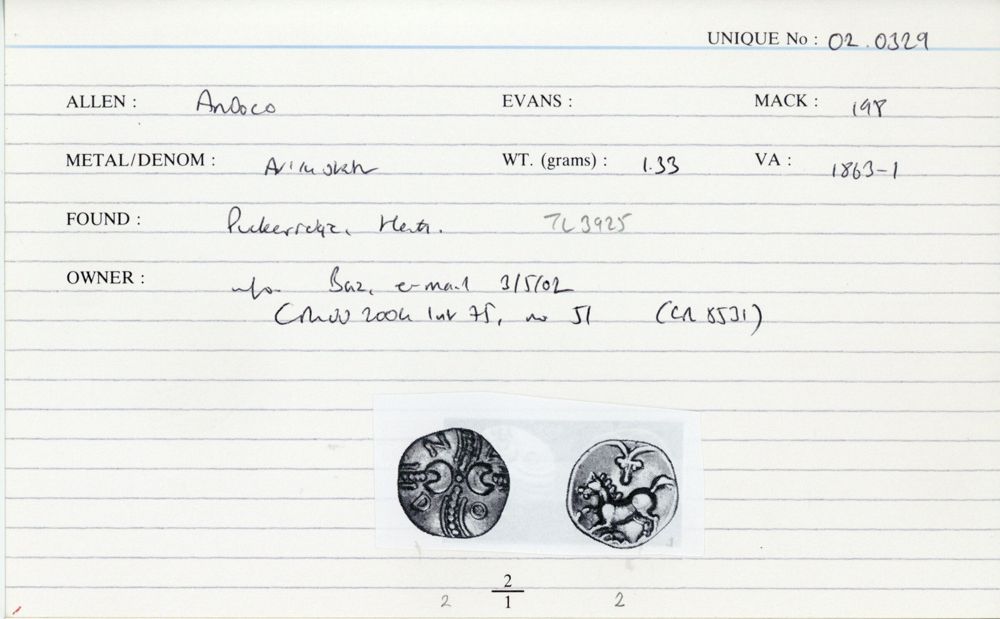 UNIQUE No : 02.0329
ALLEN : Andoco EVANS : MACK : 198
METAL/DENOM : WT. (grams) : 1.33 VA : 1863-1
FOUND : Puckeridge, Herts. TL3925
OWNER : info Baz, e-mail 3/5/02
2004 75, no 51 (CR 8531)
A N D O
2
1
2 2